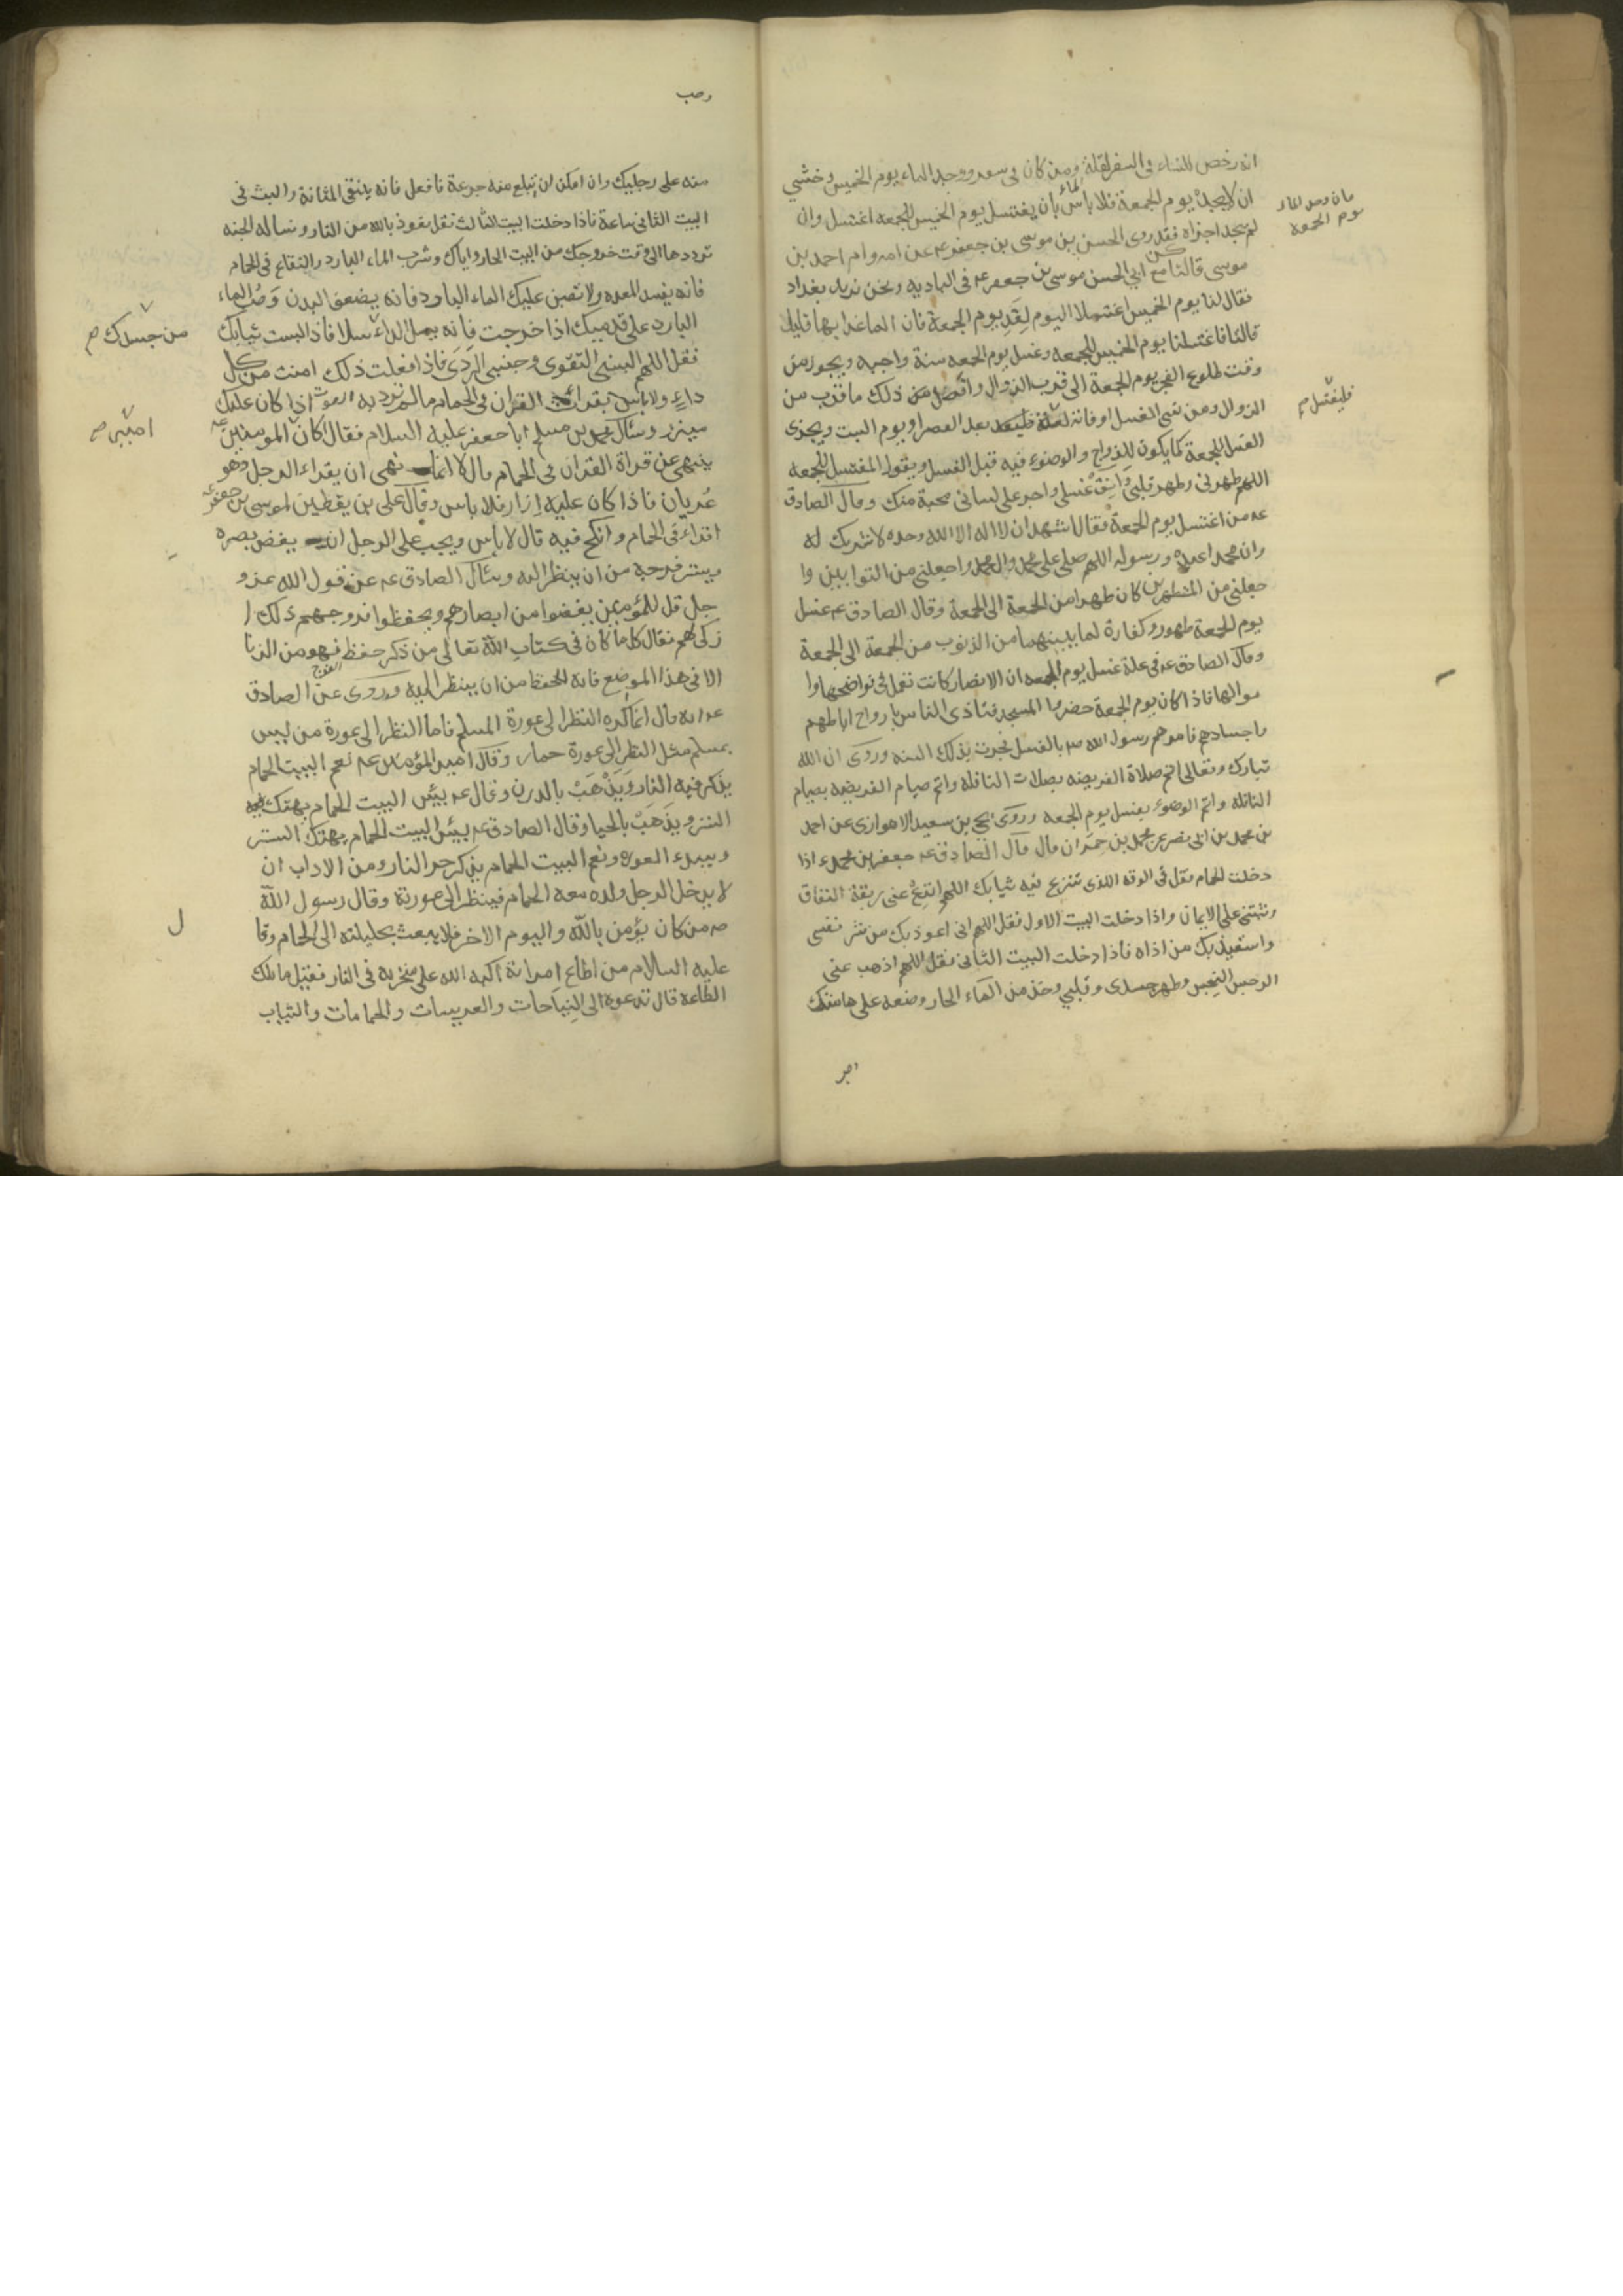 انه رخص للنساء فى السفر لقلة الماء ومن كان فى سفر ووجد الماء يوم الخميس وخشي
ان لا يجد يوم الجمعة فلا بأس بأن يغتسل يوم الخميس للجمعه اغتسل وان
فان وجد الماء
يوم الجمعة
لم يجد اجزاه فقد روى الحسن بن موسى بن جعفر عه عن امه وام احمد بن
موسى قالتا كنا مع ابي الحسن موسى بن جعفر عه فى الباديه ونحن نريد بغداد
فقال لنا يوم الخميس اغتسلا اليوم لغد يوم الجمعة فان الما غدا بها قليل
قالتا فاغتسلنا يوم الخميس للجمعه وغسل يوم الجمعه سنة واجبه ويجوز من
وقت طلوع الفجر يوم الجمعة الى قرب الزوال وافضل من ذلك ما قرب من
الزوال ومن نسي الغسل او فاته لعلة فليعد بعد العصر او يوم السبت ويجزى
فليغتسل م
الغسل للجمعة كما يكون للرواح والوضوء فيه قبل الغسل ويقول المغتسل للجمعه
اللهم طهرنى وطهر قلبى وانق غسلى واجر على لسانى محبة منك وقال الصادق
عه من اغتسل يوم الجمعة فقال اشهد ان لا اله الا الله وحده لا شريك له
وان محمدا عبده ورسوله اللهم صلى على محمد وال محمد واجعلنى من التوابين وا
جعلنى من المتطهرين كان طهرا من الجمعة الى الجمعة وقال الصادق عه غسل
يوم الجمعة طهور وكفارة لما بينهما من الذنوب من الجمعة الى الجمعة
وقال الصادق عه فى علة غسل يوم الجمعه ان الانصار كانت تعمل فى نواضحها وا
موالها فاذا كان يوم الجمعة حضروا المسجد فتاذى الناس بارواح اباطهم
واجسادهم فامرهم رسول الله ص بالغسل فجرت بذلك السنه وروى ان الله
تبارك وتعالى اتم صلاة الفريضه بصلات النافلة واتم صيام الفريضه بصيام
النافلة واتم الوضوء بغسل يوم الجمعه وروى يحي بن سعيد الاهوازى عن احمد
بن محمد بن ابى نصر عن محمد بن حمران قال قال الصادق عه جعفر بن محمد ع اذا
دخلت الحمام فقل فى الوقت الذى تنزع فيه ثيابك اللهم انزع عنى ربقة النفاق
وثبتنى على الايمان واذا دخلت البيت الاول فقل اللهم انى اعوذ بك من شر نفسى
واستعيذ بك من اذاه فاذا دخلت البيت الثانى فقل اللهم اذهب عنى
الرجس النجس وطهر جسدى وقلبي وخذ من الماء الحار وضعه على هامتك
منه على رجليك وان امكن ان تبلع منه جرعة فافعل فانه ينقى المثانة والبث فى
البيت الثانى ساعة فاذا دخلت البيت الثالث فقل نعوذ بالله من النار ونساله الجنه
ترددها الى وقت خروجك من البيت الحار واياك وشرب الماء البارد والفقاع فى الحمام
فانه يفسد المعده ولا تصبن عليك الماء البارد فانه يضعف البدن وصب الماء
البارد على قدميك اذا خرجت فانه يسل الداء سلا فاذا لبست ثيابك
من جسدك م
فقل اللهم البسنى التقوى وجنبنى الردى فاذا فعلت ذلك امنت من كل
داءٍ ولا باس بقراءة القران فى الحمام ما لم ترد به الصوت اذا كان عليك
مئزر وسئال محمد بن مسلم ابا جعفر عليه السلام فقال اكان المومنين عه
امير م
ينهى عن قراة القران فى الحمام قال لا انما نهى ان يقراء الرجل وهو
عريان فاذا كان عليه ازار فلا باس وقال على بن يقطين لموسى بن جعفر عه
اقراء فى الحمام وانكح فيه قال لا باس ويجب على الرجل ان يغض بصره
ويستر فرجه من ان ينظر اليه وسئال الصادق عه عن قول الله عز و
جل قل للمؤمنين يغضوا من ابصارهم ويحفظوا فروجهم ذلك ا
زكى لهم فقال كلما كان فى كتاب الله تعالى من ذكر حفظ الفرج فهو من الزنا
الا فى هذا الموضع فانه الحفظ من ان ينظر اليه وروى عن الصادق
عه انه قال انما اكره النظر الى عورة المسلم فاما النظر الى عورة من ليس
بمسلم مثل النظر الى عورة حمار وقال امير المؤمنين عه نعم البيت الحمام
يذكر فيه النار ويذهب بالدرن وقال عه بيئس البيت الحمام يهتك
الستر ويذهب بالحيا وقال الصادق عه بيئس البيت الحمام يهتك الستر
ويبدء العوره ونعم البيت الحمام يذكر حر النار ومن الاداب ان
لا يدخل الرجل ولده معه الحمام فينظر الى عورته وقال رسول الله
ص من كان يؤمن بالله واليوم الاخر فلا يبعث بحليلته الى الحمام وقا
ل
عليه السلام من اطاع امراتة اكبه الله على منخريه فى النار فقيل ما تلك
الطاعة قال تدعوه الى النياحات والعريسات والحمامات والثياب